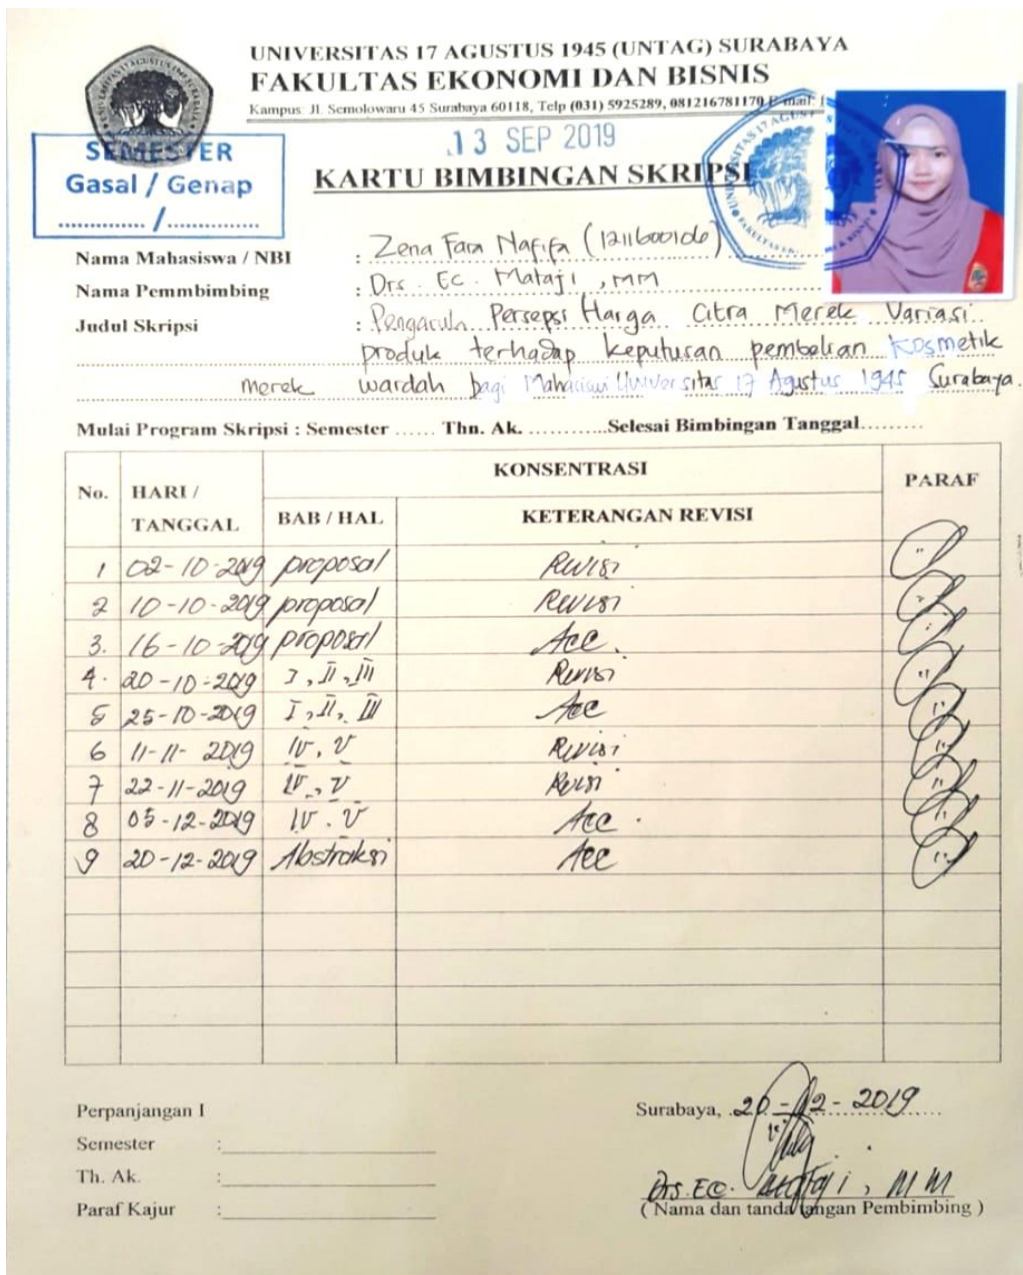 UNIVERSITAS 17 AGUSTUS 1945 (UNTAG) SURABAYA
FAKULTAS EKONOMI DAN BISNIS
Kampus: Jl. Semolowaru 45 Surabaya 60118, Telp (031) 5925289, 081216781170 E-mail:
SEMESTER
Gasal / Genap
............... / ...............
13 SEP 2019
KARTU BIMBINGAN SKRIPSI
Nama Mahasiswa / NBI : Zena Fara Nafifa (1211600106)
Nama Pemmbimbing : Drs. Ec. Mataji, MM
Judul Skripsi : Pengaruh Persepsi Harga Citra Merek Variasi
produk terhadap keputusan pembelian Kosmetik
merek wardah bagi Mahasiswi Universitas 17 Agustus 1945 Surabaya.
Mulai Program Skripsi : Semester ...... Thn. Ak. ............Selesai Bimbingan Tanggal.........
No. HARI / TANGGAL KONSENTRASI PARAF
BAB / HAL KETERANGAN REVISI
1 02-10-2019 proposal Revisi
2 10-10-2019 proposal Revisi
3. 16-10-2019 proposal Acc.
4. 20-10-2019 I, II, III Revisi
5 25-10-2019 I, II, III Acc
6 11-11-2019 IV, V Revisi
7 22-11-2019 IV, V Revisi
8 05-12-2019 IV. V Acc.
9 20-12-2019 Abstraksi Acc
Perpanjangan I
Semester :
Th. Ak. :
Paraf Kajur :
Surabaya, 20-12-2019
Drs. Ec. Mataji, MM
( Nama dan tanda tangan Pembimbing )